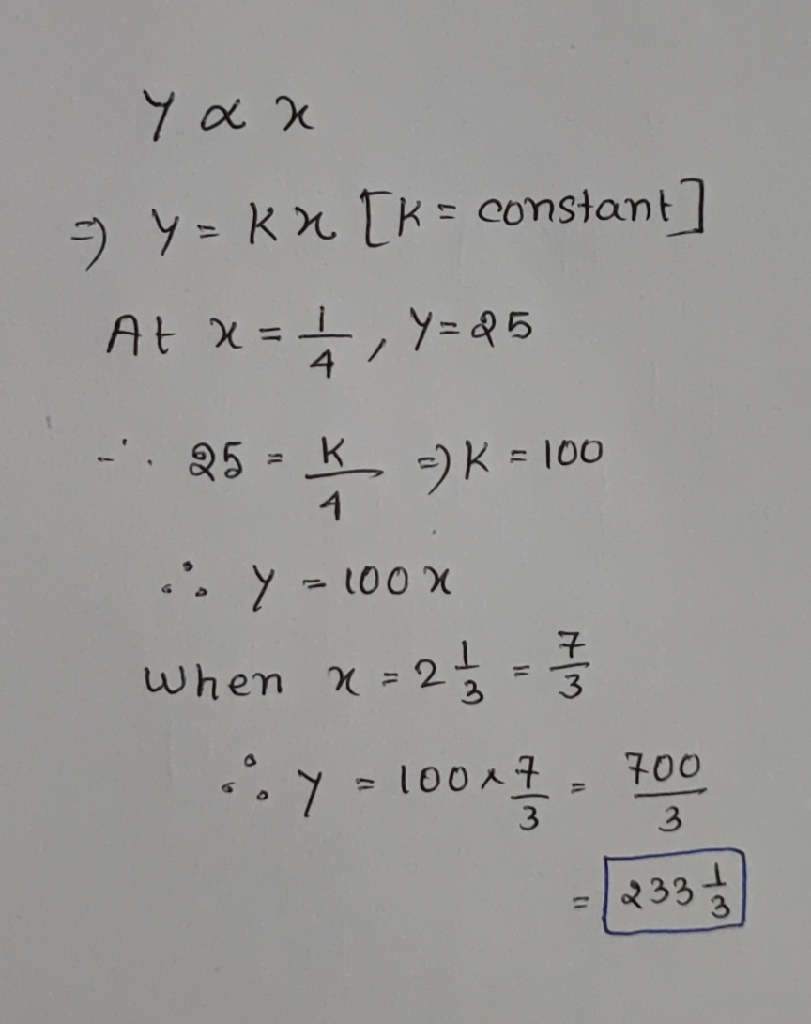 Y ∝ x
⇒ Y = Kx [K = constant]
At x = 1/4, Y = 25
∴ 25 = K/4 ⇒ K = 100
∴ Y = 100x
When x = 2 1/3 = 7/3
∴ Y = 100 × 7/3 = 700/3
= 233 1/3